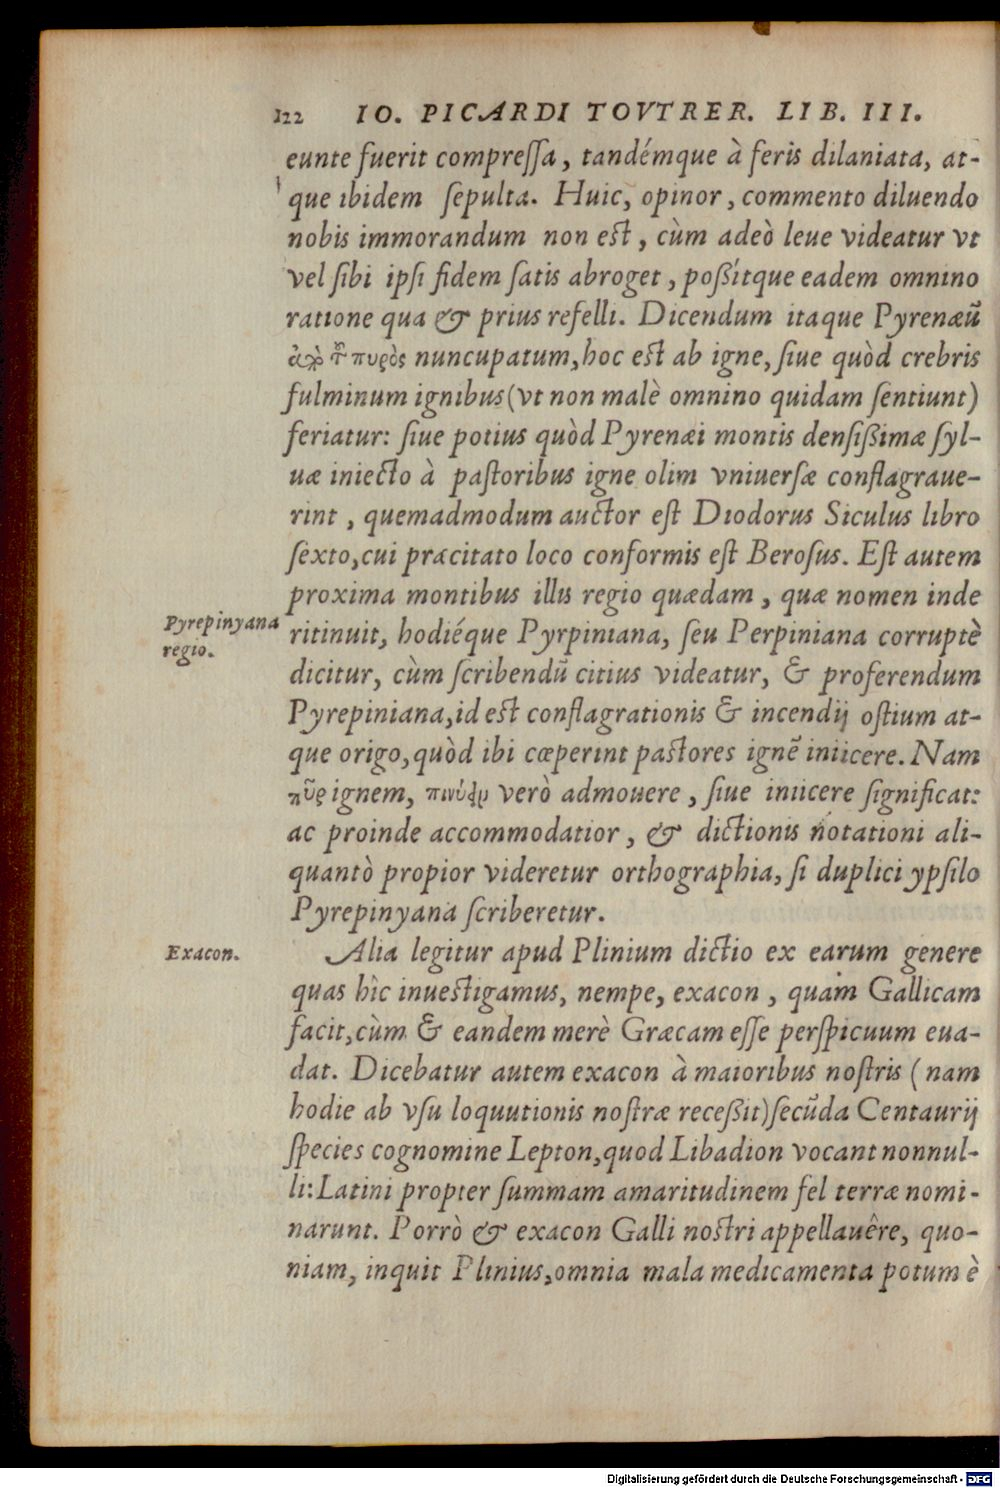 122 IO. PICARDI TOVTRER. LIB. III.
eunte fuerit compreſſa, tandémque à feris dilaniata, at-
que ibidem ſepulta. Huic, opinor, commento diluendo
nobis immorandum non eſt, cùm adeò leue videatur vt
vel ſibi ipſi fidem ſatis abroget, poßítque eadem omnino
ratione qua & prius refelli. Dicendum itaque Pyrenæũ
πυρὸς nuncupatum, hoc eſt ab igne, ſiue quòd crebris
fulminum ignibus (vt non malè omnino quidam ſentiunt)
feriatur: ſiue potius quòd Pyrenæi montis denſißimæ ſyl-
uæ iniecto à paſtoribus igne olim vniuerſæ conflagraue-
rint, quemadmodum auctor eſt Diodorus Siculus libro
ſexto, cui præcitato loco conformis eſt Beroſus. Eſt autem
proxima montibus illis regio quædam, quæ nomen inde
Pyrepinyana
regio.
ritinuit, hodiéque Pyrpiniana, ſeu Perpiniana corruptè
dicitur, cùm ſcribendũ citius videatur, & proferendum
Pyrepiniana, id eſt conflagrationis & incendij oſtium at-
que origo, quòd ibi cœperint paſtores ignẽ iniicere. Nam
πῦρ ignem, verò admouere, ſiue iniicere ſignificat:
ac proinde accommodatior, & dictionis notationi ali-
quantò propior videretur orthographia, ſi duplici ypſilo
Pyrepinyana ſcriberetur.
Exacon.
Alia legitur apud Plinium dictio ex earum genere
quas hîc inueſtigamus, nempe, exacon, quam Gallicam
facit, cùm & eandem merè Græcam eſſe perſpicuum eua-
dat. Dicebatur autem exacon à maioribus noſtris (nam
hodie ab vſu loquutionis noſtræ receßit) ſecũda Centaurij
ſpecies cognomine Lepton, quod Libadion vocant nonnul-
li: Latini propter ſummam amaritudinem fel terræ nomi-
narunt. Porrò & exacon Galli noſtri appellauêre, quo-
niam, inquit Plinius, omnia mala medicamenta potum è
Digitalisierung gefördert durch die Deutsche Forschungsgemeinschaft - DFG